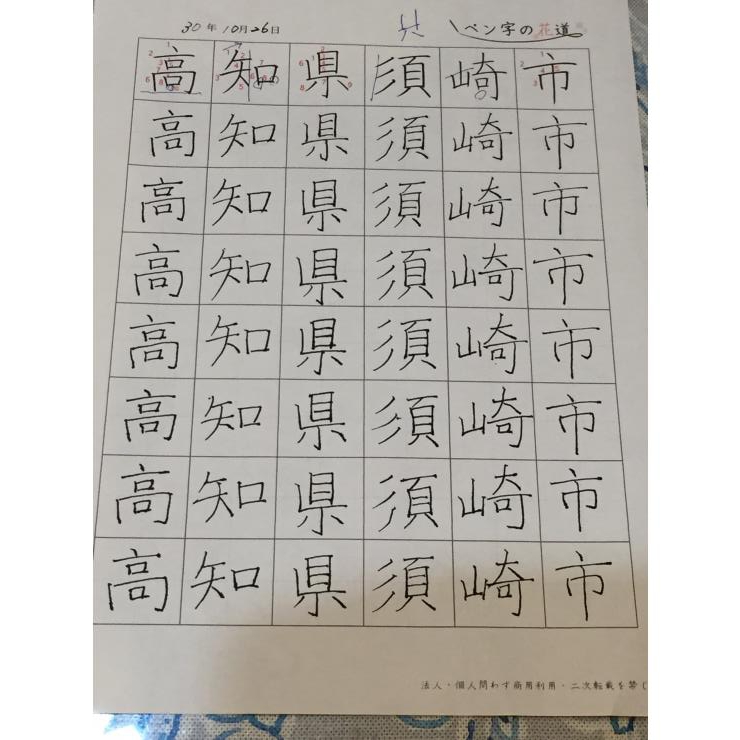 30年10月26日 ペン字の花道
高知県須崎市
高知県須崎市
高知県須崎市
高知県須崎市
高知県須崎市
高知県須崎市
高知県須崎市
高知県須崎市
法人・個人問わず商用利用・二次転載を禁